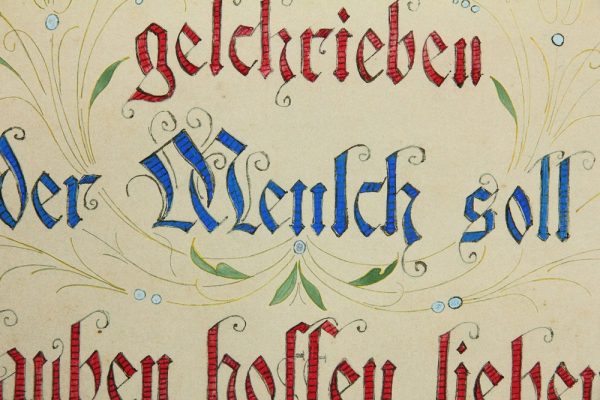 geſchrieben
der Menſch soll
auben hoffen lieben